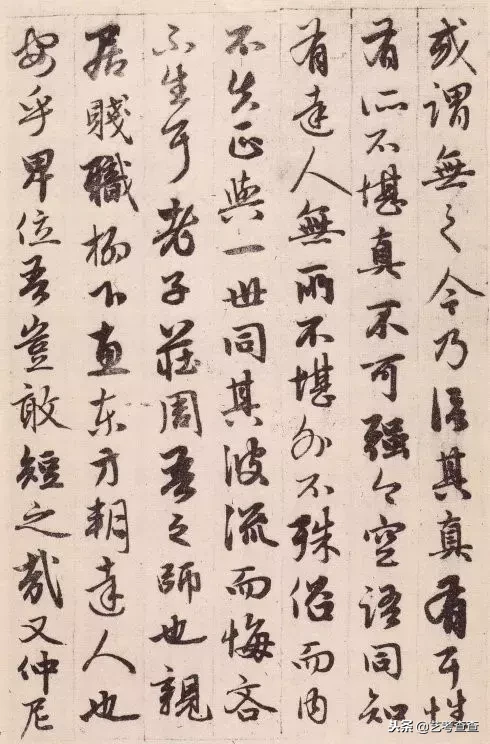 或謂無之今乃信其真有耳性
有所不堪真不可強今空語同知
有達人無所不堪外不殊俗而內
不失正與一世同其波流而悔吝
不生耳老子莊周吾之師也親
居賤職柳下惠東方朔達人也
安乎卑位吾豈敢短之哉又仲尼
头条 @艺考查查